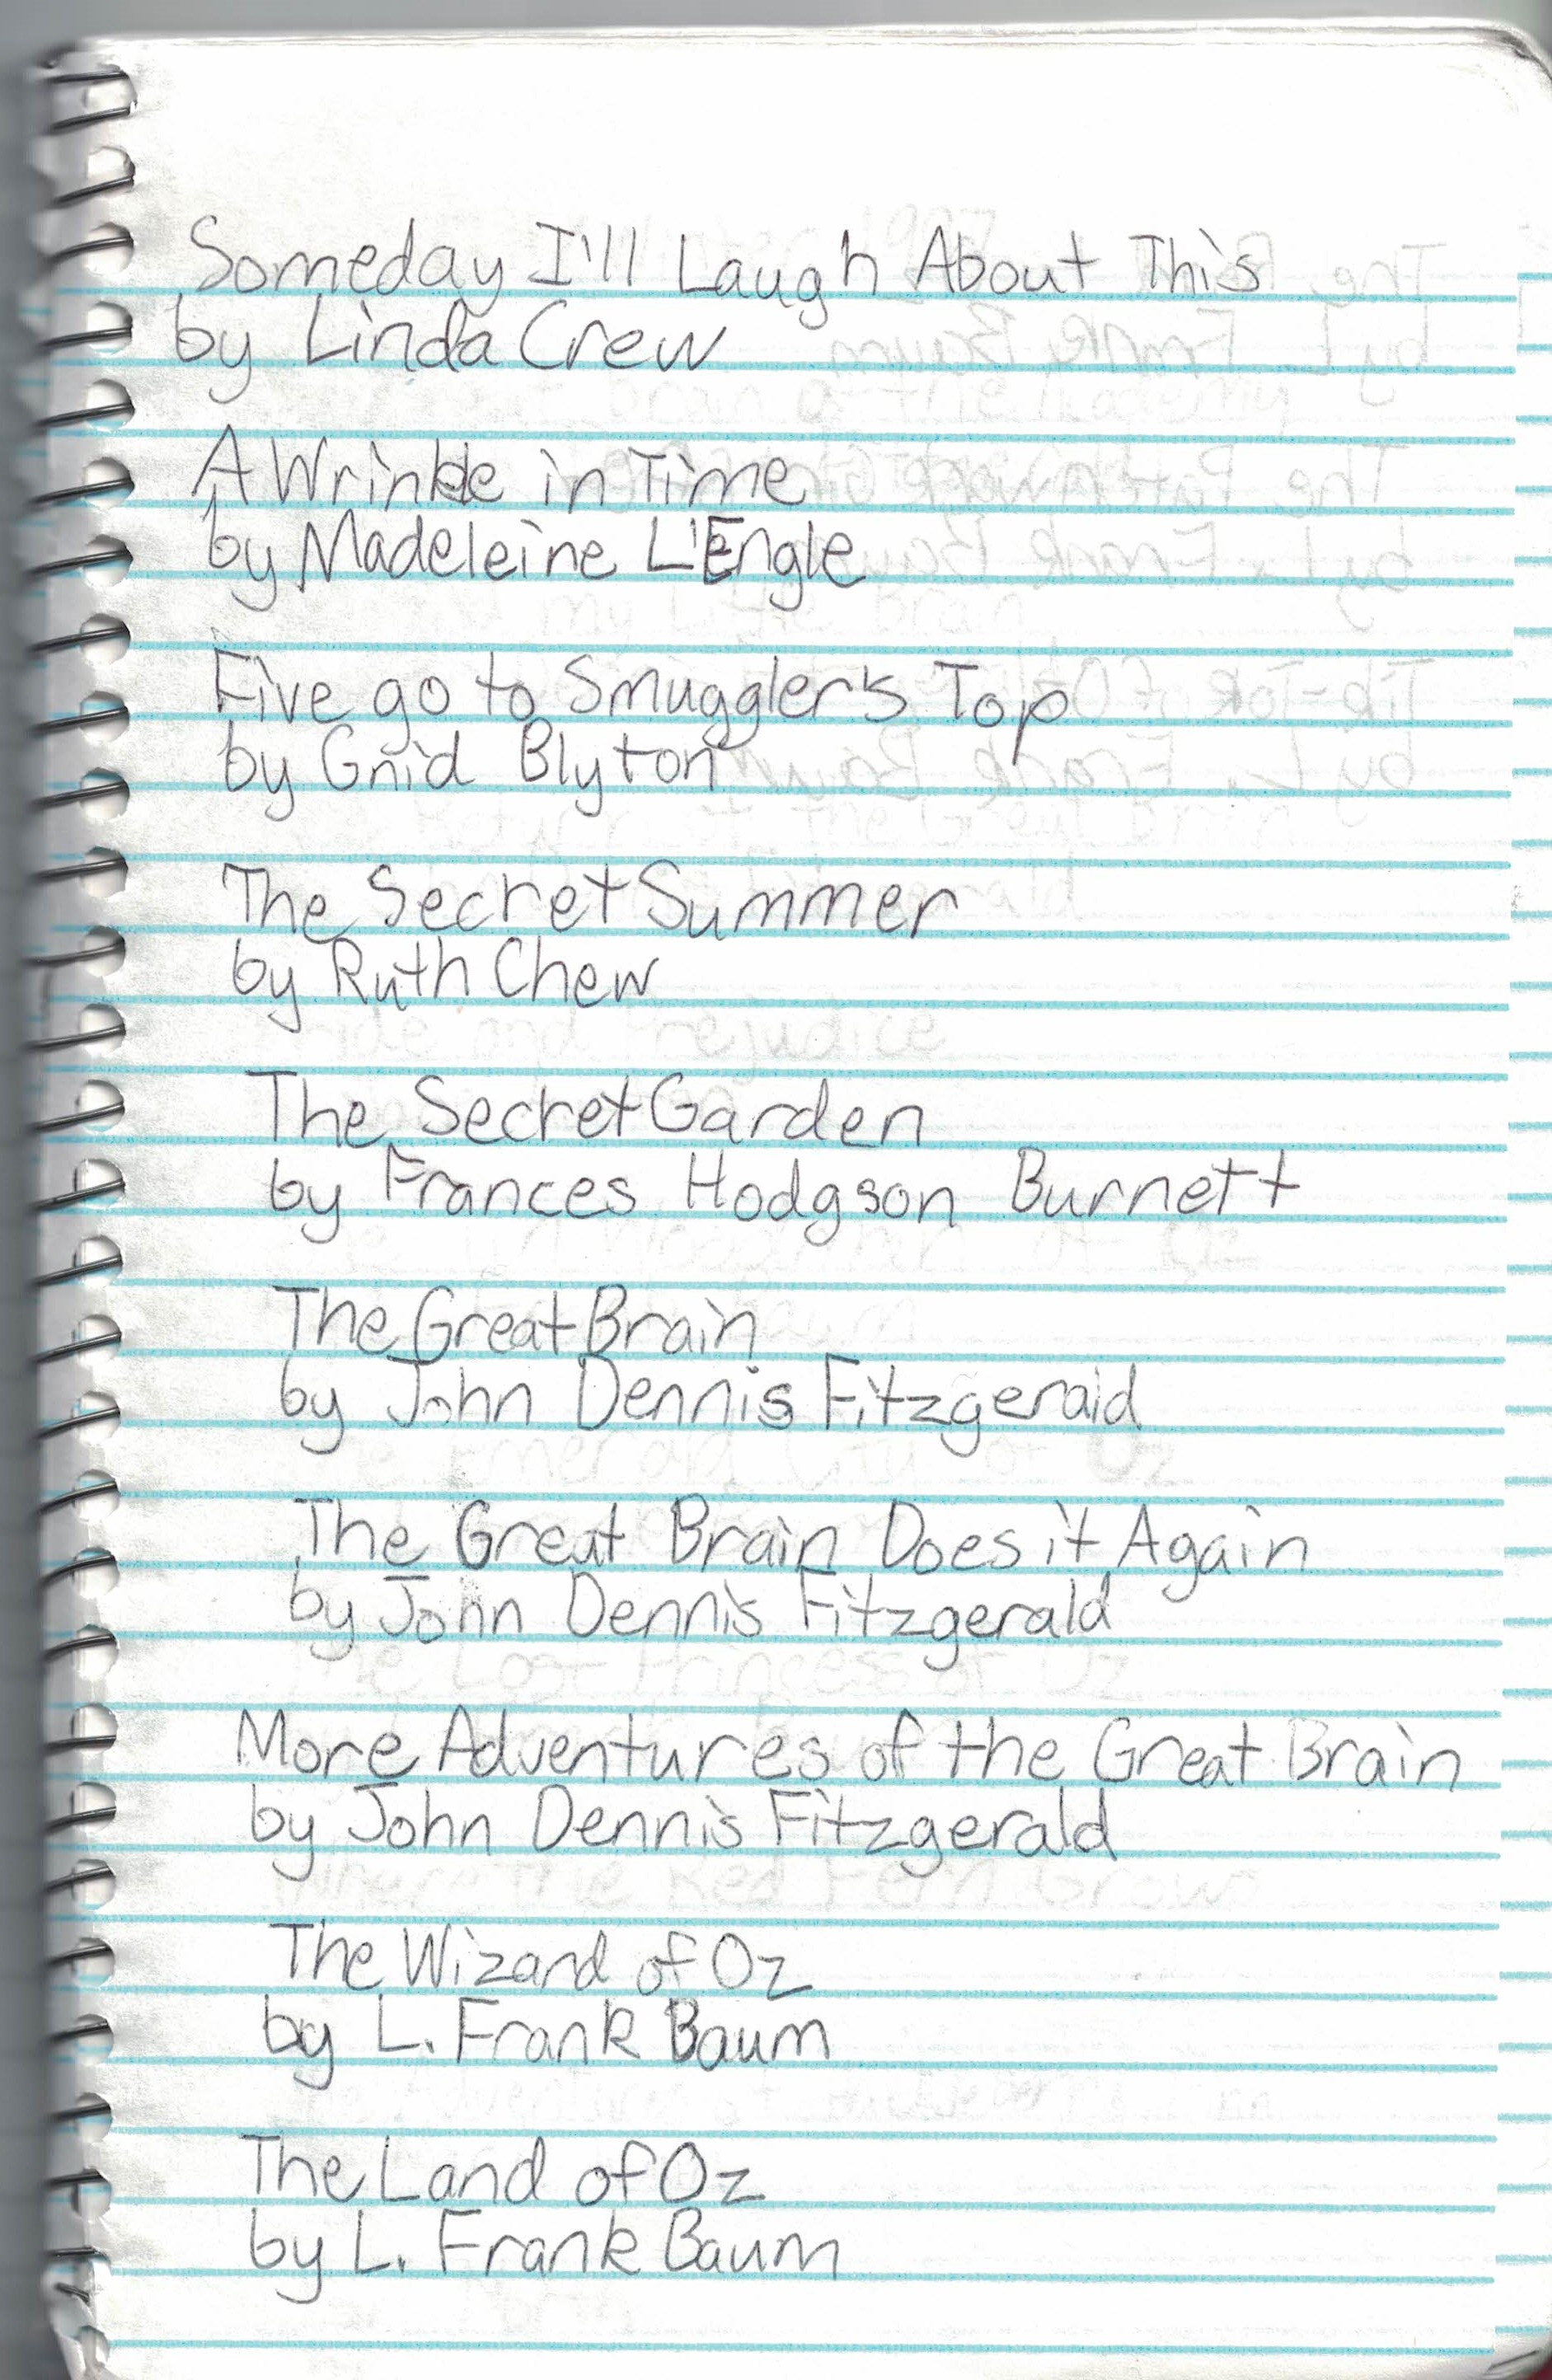 Someday I'll Laugh About This
by Linda Crew
A Wrinkle in Time
by Madeleine L'Engle
Five go to Smuggler's Top
by Gnid Blyton
The Secret Summer
by Ruth Chew
The Secret Garden
by Frances Hodgson Burnett
The Great Brain
by John Dennis Fitzgerald
The Great Brain Does it Again
by John Dennis Fitzgerald
More Adventures of the Great Brain
by John Dennis Fitzgerald
The Wizard of Oz
by L. Frank Baum
The Land of Oz
by L. Frank Baum